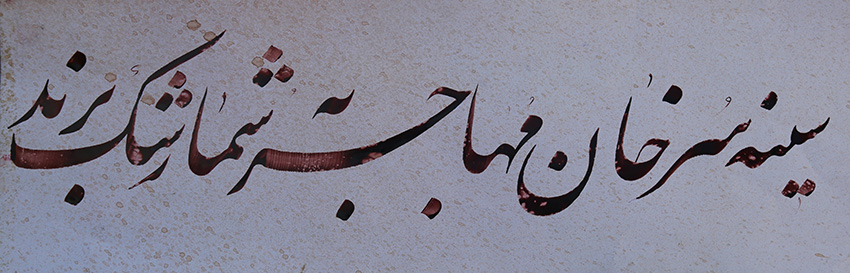 سینه سرخان مهاجر به شما رشک برند